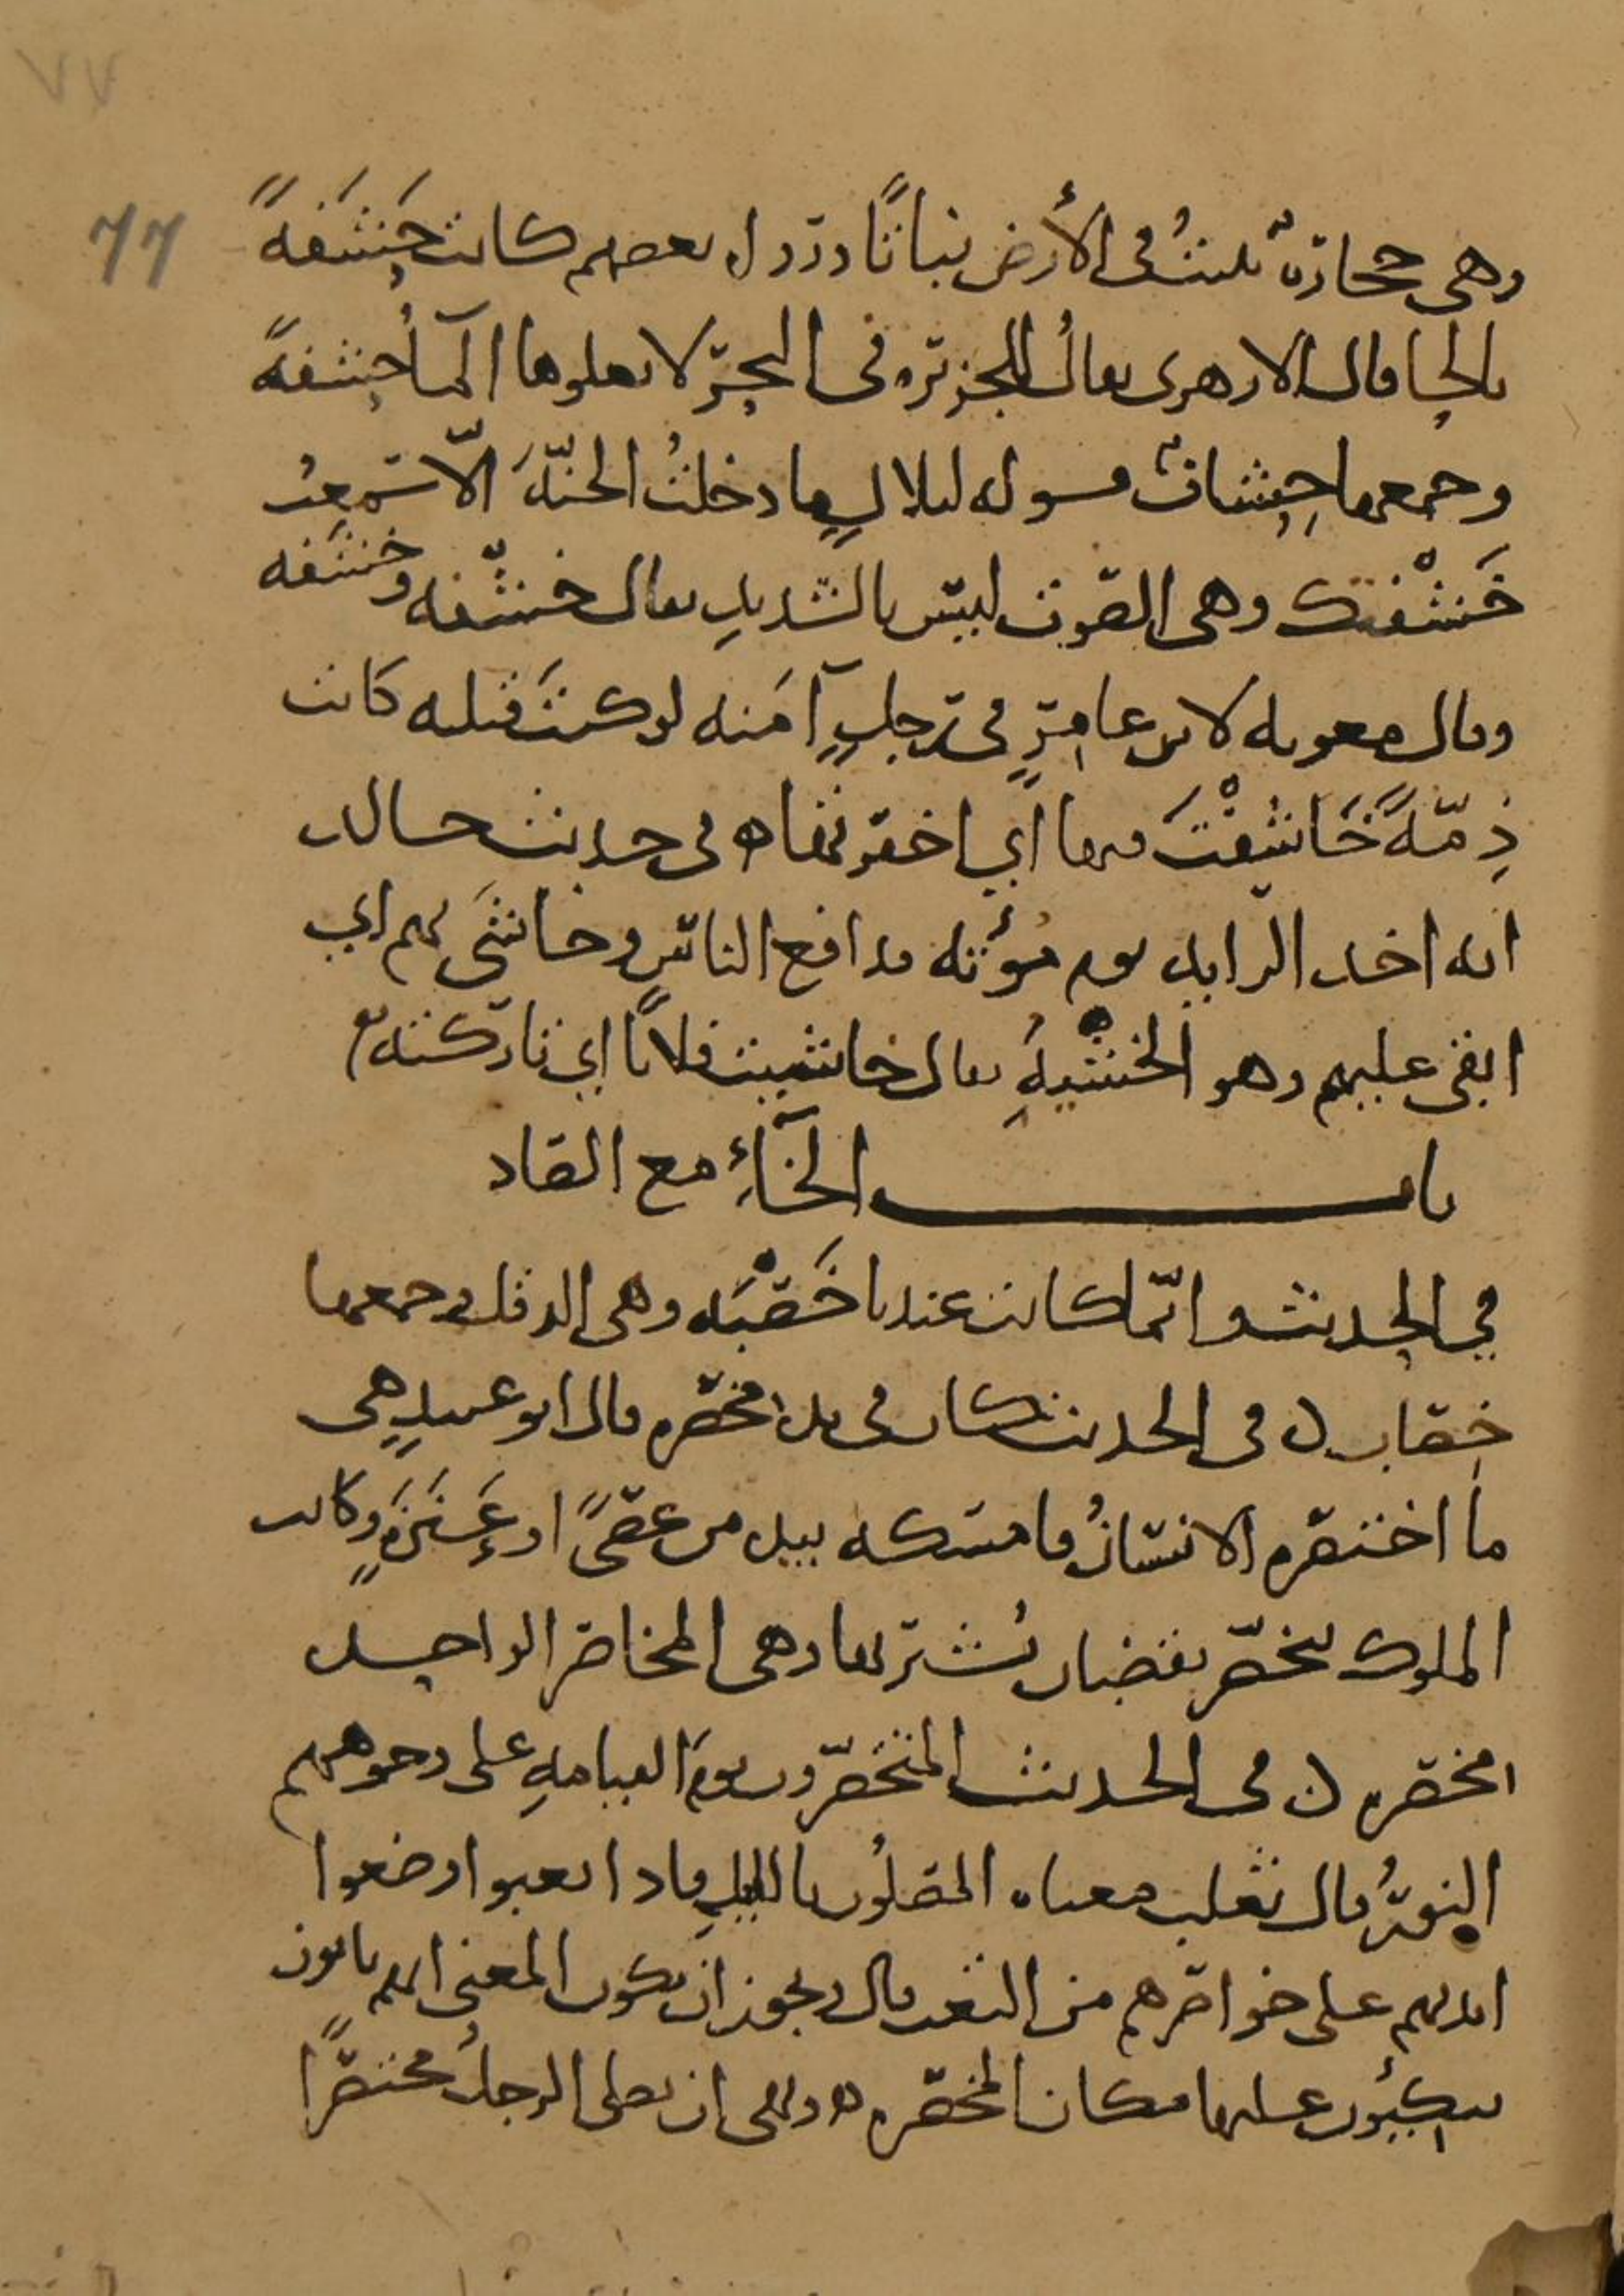 ٧٧
٦٦
وهي حجارة تنبت في الأرض نباتًا وروى بعضهم كانت حَشَفَةً
بالحاء قال الازهري يقالُ للجزيرة في البحر لا يعلوها الماءُ حشفةً
وجمعها حِشافٌ قوله لبلالٍ ما دخلتُ الجنّةَ الّا سمعتُ
خَشْفتك وهي الصّوت ليس بالشديدِ يقال خشْفه وخشَفه
وقال معوية لابن عامرٍ في رجلٍ آمَنه لو كنتَ قتلته كانت
ذِمّةً خَاشفْتَ فيها اي اخفرتها ه في حديث خالد
انه اخذ الراية يوم مؤته فدافع الناس وخاشَى بهم اي
ابقى عليهم وهو الخشْيةِ يقال خاشيت فلانًا اي تاركته
باب الخآءِ مع الصاد
في الحديث وانّما كانت عندنا خَصْبَه وهي الدقل وجمعها
خِصاب ن في الحديث كان في يده مخصره قال ابو عبيدٍ هي
ما اختصره الانسانُ فامسكه بيده من عصًى او عَنَزَةٍ وكانت
الملوك تتخصّر بقضبان تُشير بها وهي المخاصر الواحده
مخصره ن في الحديث المتخصّرون يومَ القيامةِ على وجوههم
النورُ قال ثعلب معناه المصلُون بالليلِ فاذا تعبوا وضعوا
ايديهم على خواصرهم من التعب قال ويجوز ان يكون المعنى انهم ياتون
يتكئون عليها مكان المخصره ه ونهى ان يصلى الرجلُ مختصرًا